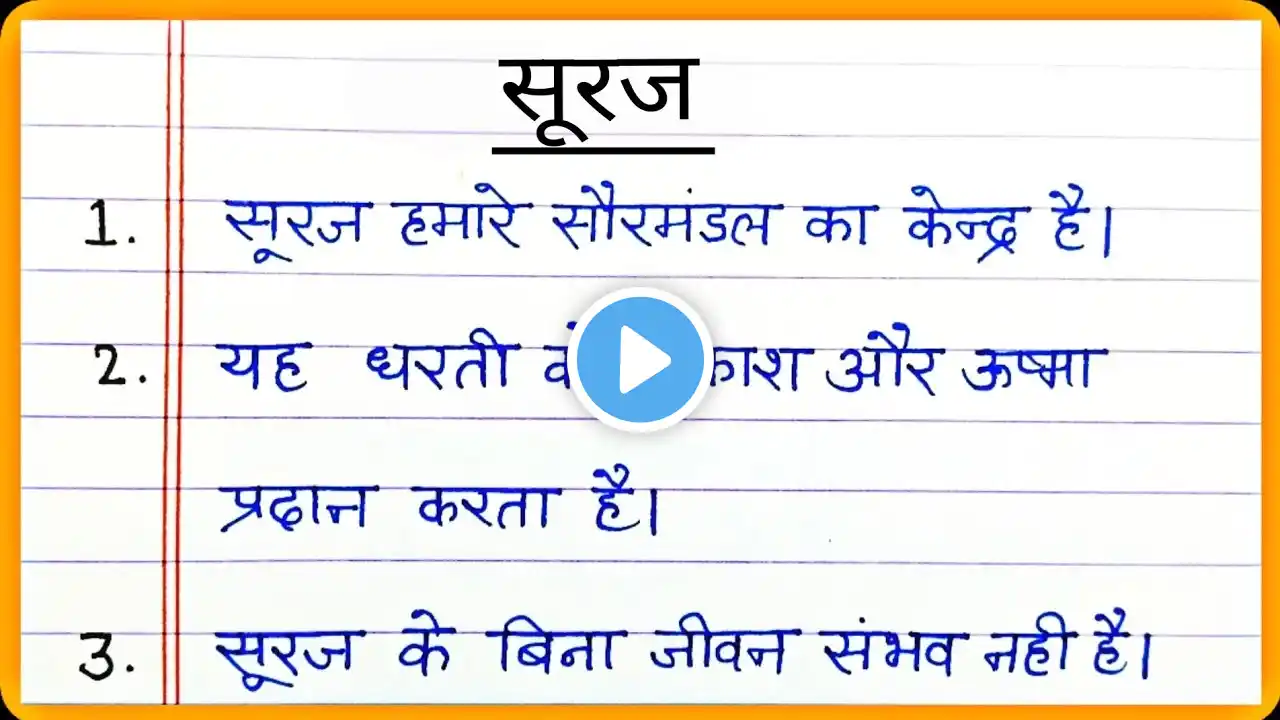 सूरज
1. सूरज हमारे सौरमंडल का केन्द्र है।
2. यह धरती और ऊष्मा
प्रदान करता है।
3. सूरज के बिना जीवन संभव नही है।